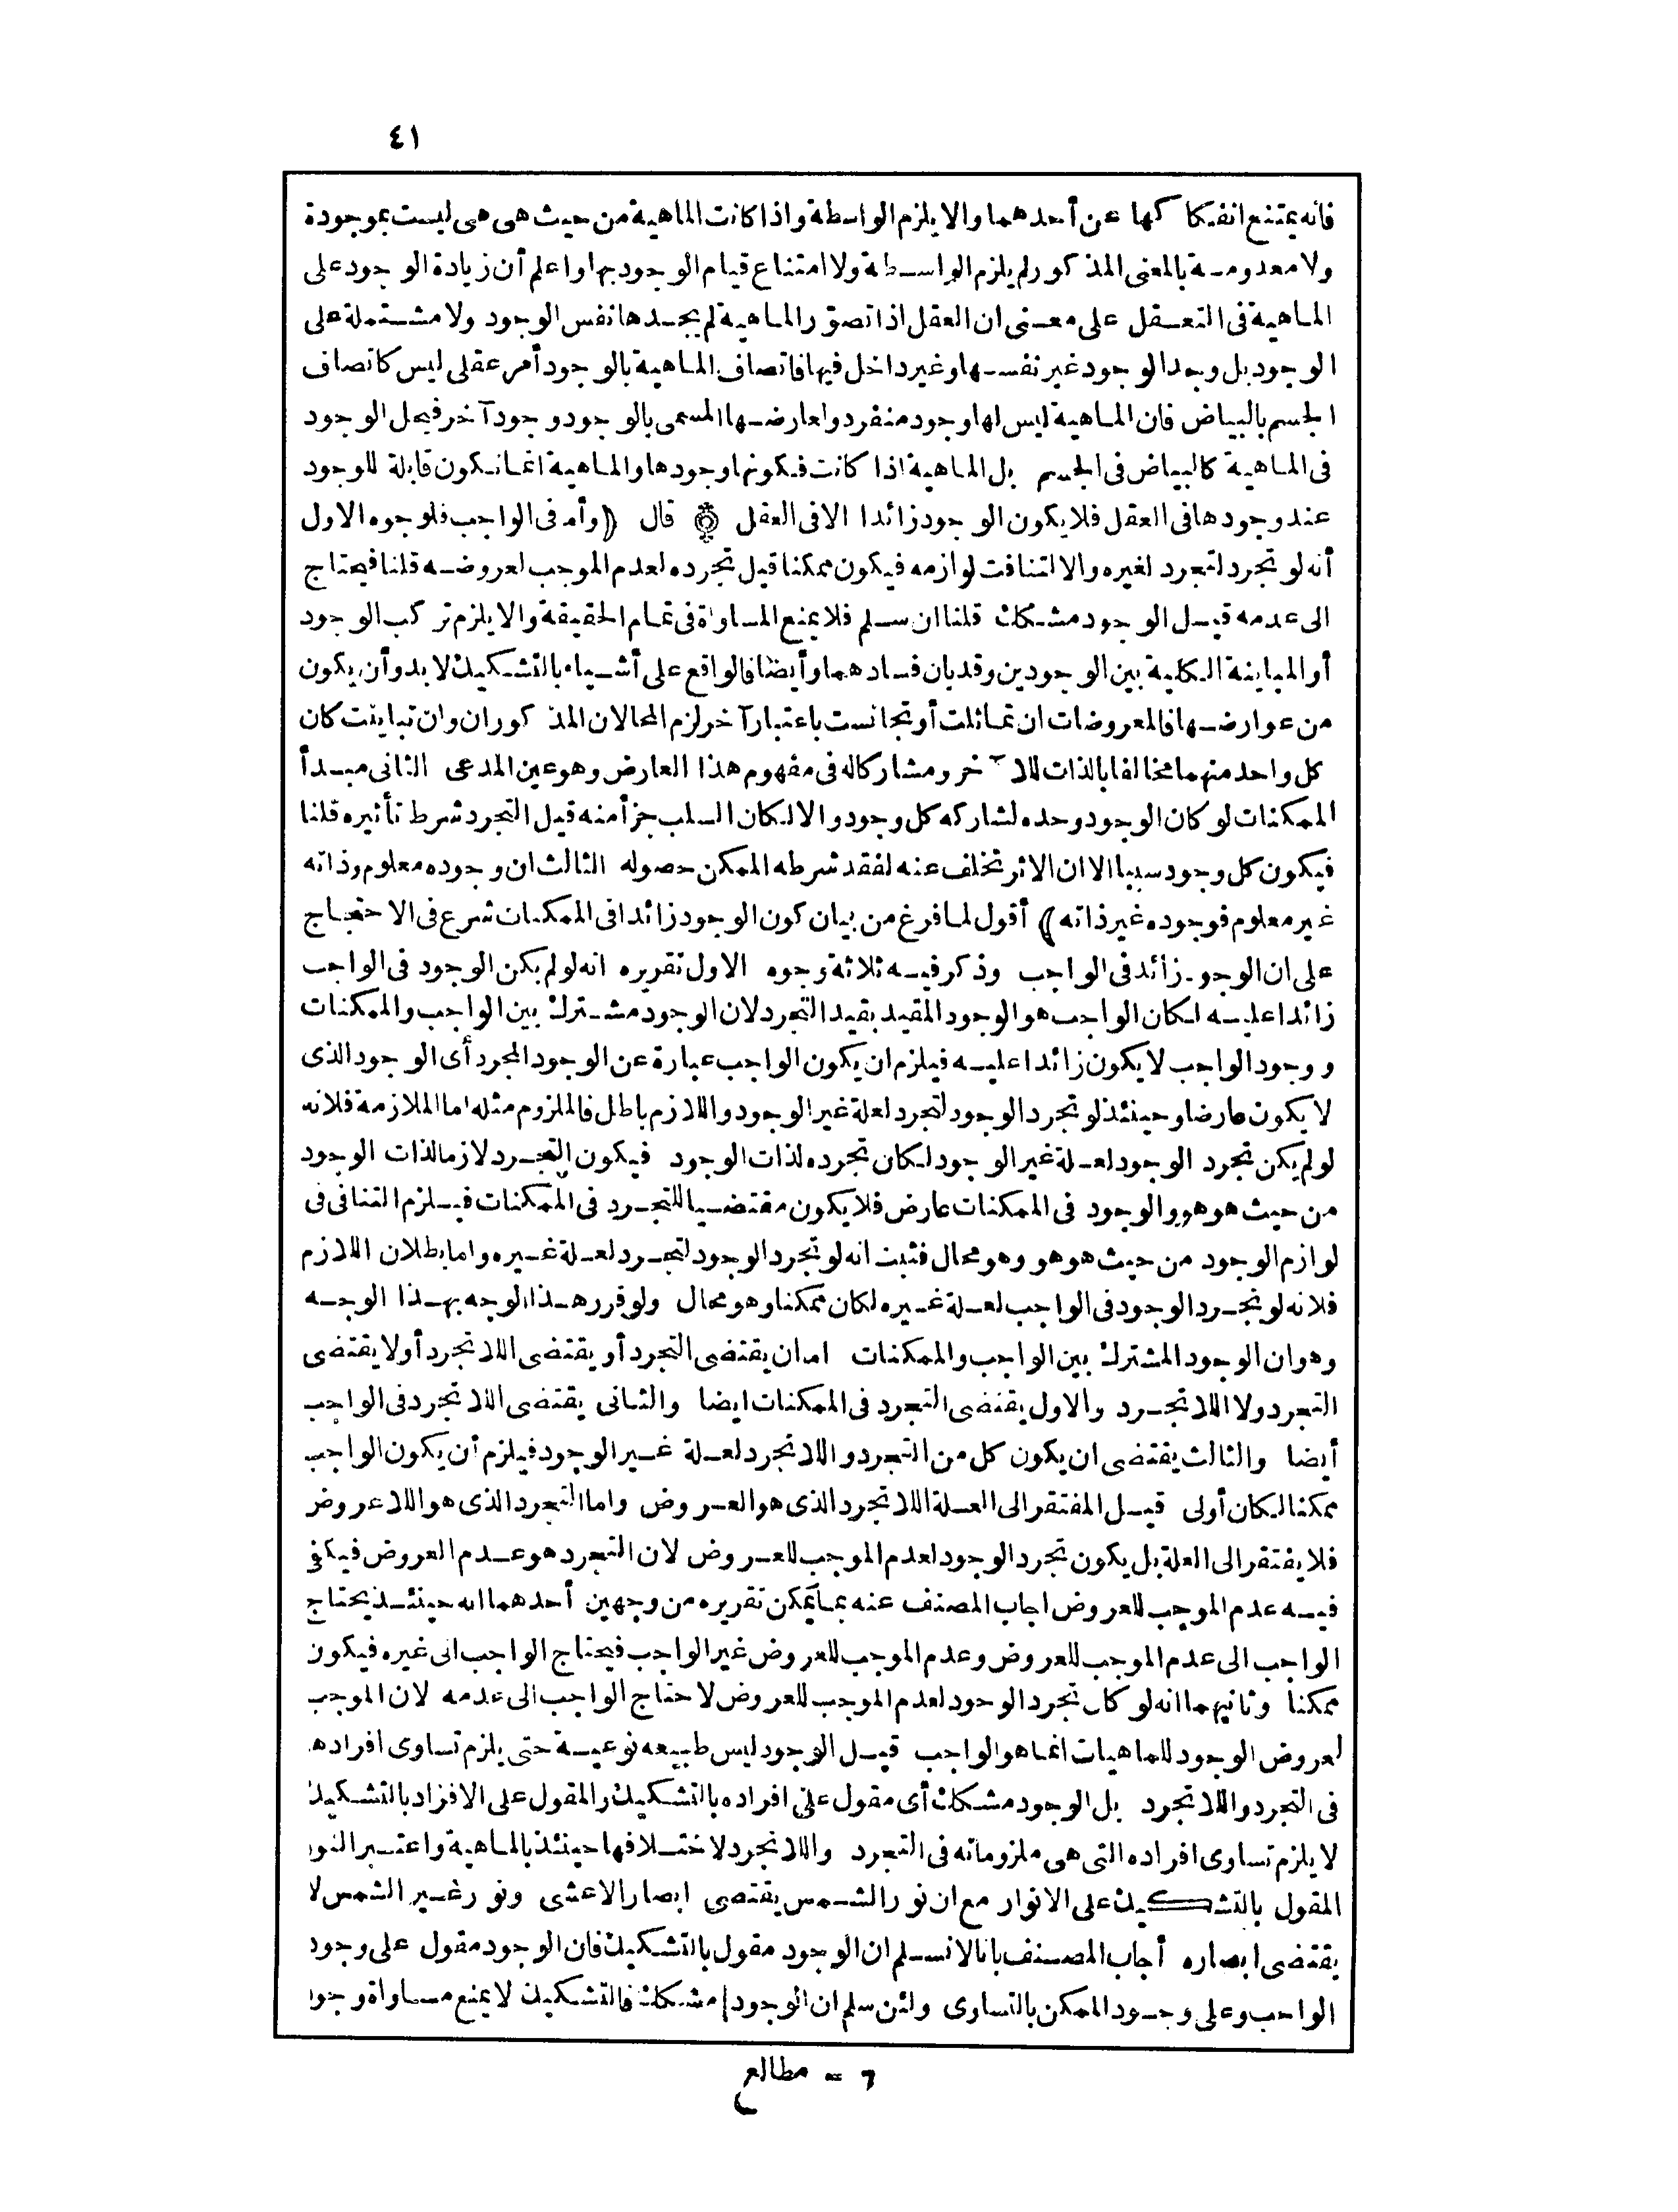 ٤١
فانه يمتنع انفكاكها عن أحدهما والا يلزم الواسطة واذا كانت الماهية من حيث هى هى ليست بموجودة
ولا معدومة بالمعنى المذكور لم يلزم الواسطة ولا امتناع قيام الوجود بها واعلم أن زيادة الوجود على
الماهية فى التعقل على معنى ان العقل اذا تصور الماهية لم يجدها نفس الوجود ولا مشتملة على
الوجود بل وجد الوجود غير نفسها وغير داخل فيها فاتصاف الماهية بالوجود أمر عقلى ليس كاتصاف
الجسم بالبياض فان الماهية ليس لها وجود منفرد ولعارضها المسمى بالوجود وجود آخر فيحل الوجود
فى الماهية كالبياض فى الجسم بل الماهية اذا كانت فكونها وجودها والماهية انما تكون قابلة للوجود
عند وجودها فى العقل فلا يكون الوجود زائدا الا فى العقل ۞ قال (وأما فى الواجب فلوجوه الاول
أنه لو تجرد لتجرد لغيره والا لتنافت لوازمه فيكون ممكنا قيل تجرده لعدم الموجب لعروضه قلنا فيحتاج
الى عدمه قيل الوجود مشكك قلنا ان سلم فلا يمنع المساواة فى تمام الحقيقة والا يلزم تركب الوجود
أو المباينة الكلية بين الوجودين وقد بان فسادهما وأيضا فالواقع على أشياء بالتشكيك لا بد وأن يكون
من عوارضها فالمعروضات ان تماثلت أو تجانست باعتبار آخر لزم المحالان المذكوران وان تباينت كان
كل واحد منهما مخالفا بالذات للآخر ومشاركا له فى مفهوم هذا العارض وهو عين المدعى الثانى مبدأ
الممكنات لو كان الوجود وحده لشاركه كل وجود والا لكان السلب جزأ منه قيل التجرد شرط تأثيره قلنا
فيكون كل وجود سببا الا ان الاثر تخلف عنه لفقد شرطه الممكن حصوله الثالث ان وجوده معلوم وذاته
غير معلوم فوجوده غير ذاته) أقول لما فرغ من بيان كون الوجود زائدا فى الممكنات شرع فى الاحتجاج
على ان الوجود زائد فى الواجب وذكر فيه ثلاثة وجوه الاول تقريره انه لو لم يكن الوجود فى الواجب
زائدا عليه لكان الواجب هو الوجود المقيد بقيد التجرد لان الوجود مشترك بين الواجب والممكنات
ووجود الواجب لا يكون زائدا عليه فيلزم ان يكون الواجب عبارة عن الوجود المجرد أى الوجود الذى
لا يكون عارضا وحينئذ لو تجرد الوجود لتجرد لعلة غير الوجود واللازم باطل فالملزوم مثله اما الملازمة فلانه
لو لم يكن تجرد الوجود لعلة غير الوجود لكان تجرده لذات الوجود فيكون التجرد لازما لذات الوجود
من حيث هو هو والوجود فى الممكنات عارض فلا يكون مقتضيا للتجرد فى الممكنات فيلزم التنافى فى
لوازم الوجود من حيث هو هو وهو محال فثبت انه لو تجرد الوجود لتجرد لعلة غيره واما بطلان اللازم
فلانه لو تجرد الوجود فى الواجب لعلة غيره لكان ممكنا وهو محال ولو قرر هذا الوجه بهذا الوجه
وهو ان الوجود المشترك بين الواجب والممكنات اما ان يقتضى التجرد أو يقتضى اللاتجرد أولا يقتضى
التجرد ولا اللاتجرد والاول يقتضى التجرد فى الممكنات ايضا والثانى يقتضى اللاتجرد فى الواجب
أيضا والثالث يقتضى ان يكون كل من التجرد واللاتجرد لعلة غير الوجود فيلزم أن يكون الواجب
ممكنا لكان أولى قيل المفتقر الى العلة اللاتجرد الذى هو العروض واما التجرد الذى هو اللاعروض
فلا يفتقر الى العلة بل يكون تجرد الوجود لعدم الموجب للعروض لان التجرد هو عدم العروض فيكفى
فيه عدم الموجب للعروض اجاب المصنف عنه بما يمكن تقريره من وجهين أحدهما انه حينئذ يحتاج
الواجب الى عدم الموجب للعروض وعدم الموجب للعروض غير الواجب فيحتاج الواجب الى غيره فيكون
ممكنا وثانيهما انه لو كان تجرد الوجود لعدم الموجب للعروض لاحتاج الواجب الى عدمه لان الموجب
لعروض الوجود للماهيات انما هو الواجب قيل الوجود ليس طبيعه نوعية حتى يلزم تساوى افرادها
فى التجرد واللاتجرد بل الوجود مشكك أى مقول على افراده بالتشكيك والمقول على الافراد بالتشكيك
لا يلزم تساوى افراده التى هى ملزوماته فى التجرد واللاتجرد لاختلافها حينئذ بالماهية واعتبر النور
المقول بالتشكيك على الانوار مع ان نور الشمس يقتضى ابصار الاعشى ونور غير الشمس لا
يقتضى ابصاره أجاب المصنف بانا لا نسلم ان الوجود مقول بالتشكيك فان الوجود مقول على وجود
الواجب وعلى وجود الممكن بالتساوى ولئن سلم ان الوجود مشكك فالتشكيك لا يمنع مساواة وجود
٦ - مطالع